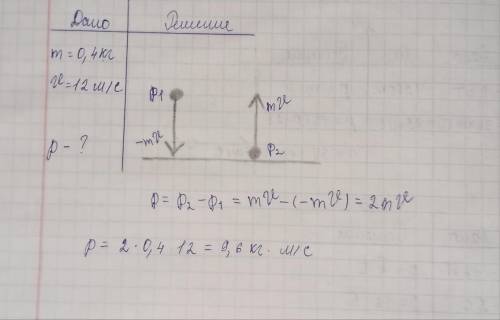 Дано Решение
m = 0,4 кг
v = 12 м/с
p1 mv
-mv p2
p - ?
p = p2 - p1 = mv - (-mv) = 2mv
p = 2 · 0,4 12 = 9,6 кг · м/с